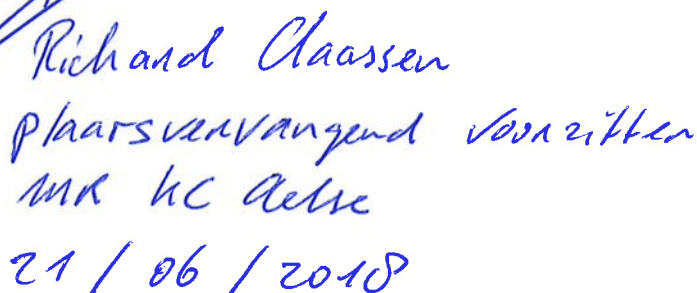 Richard Claassen
plaatsvervangend voorzitter
MR KC Aelse
21 / 06 / 2018